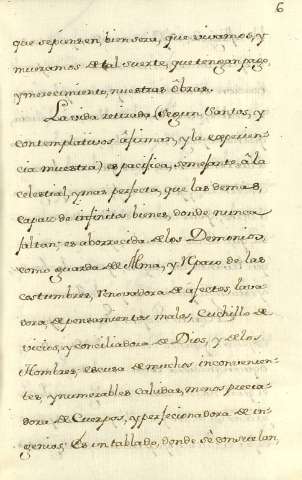 6
que se piensen, bien sera, que vivamos, y
muiramos de tal suerte, que tengan pago,
y merecimiento, nuestras obras.
La vida retirada (segun Santos, y
contemplativos afirman, y la experien
cia muestra) es pacifica, semejante, â la
celestial, y mas perfecta, que las demas,
capaz de infinitos bienes, donde nunca
faltan; es aborrecida de los Demonios,
como guarda del Alma, y Reparo de las
costumbres, Renovadora de afectos, lava-
dora de pensamientos malos, Cuchillo de
vicios, y conciliadora de Dios, y de los
Hombres; escusa de muchos inconvenien-
tes, ynumerables caludas, menos precia-
dora de Cuerpos, y perfecionadora de in-
genios: Es un tablado, donde se consuelan,